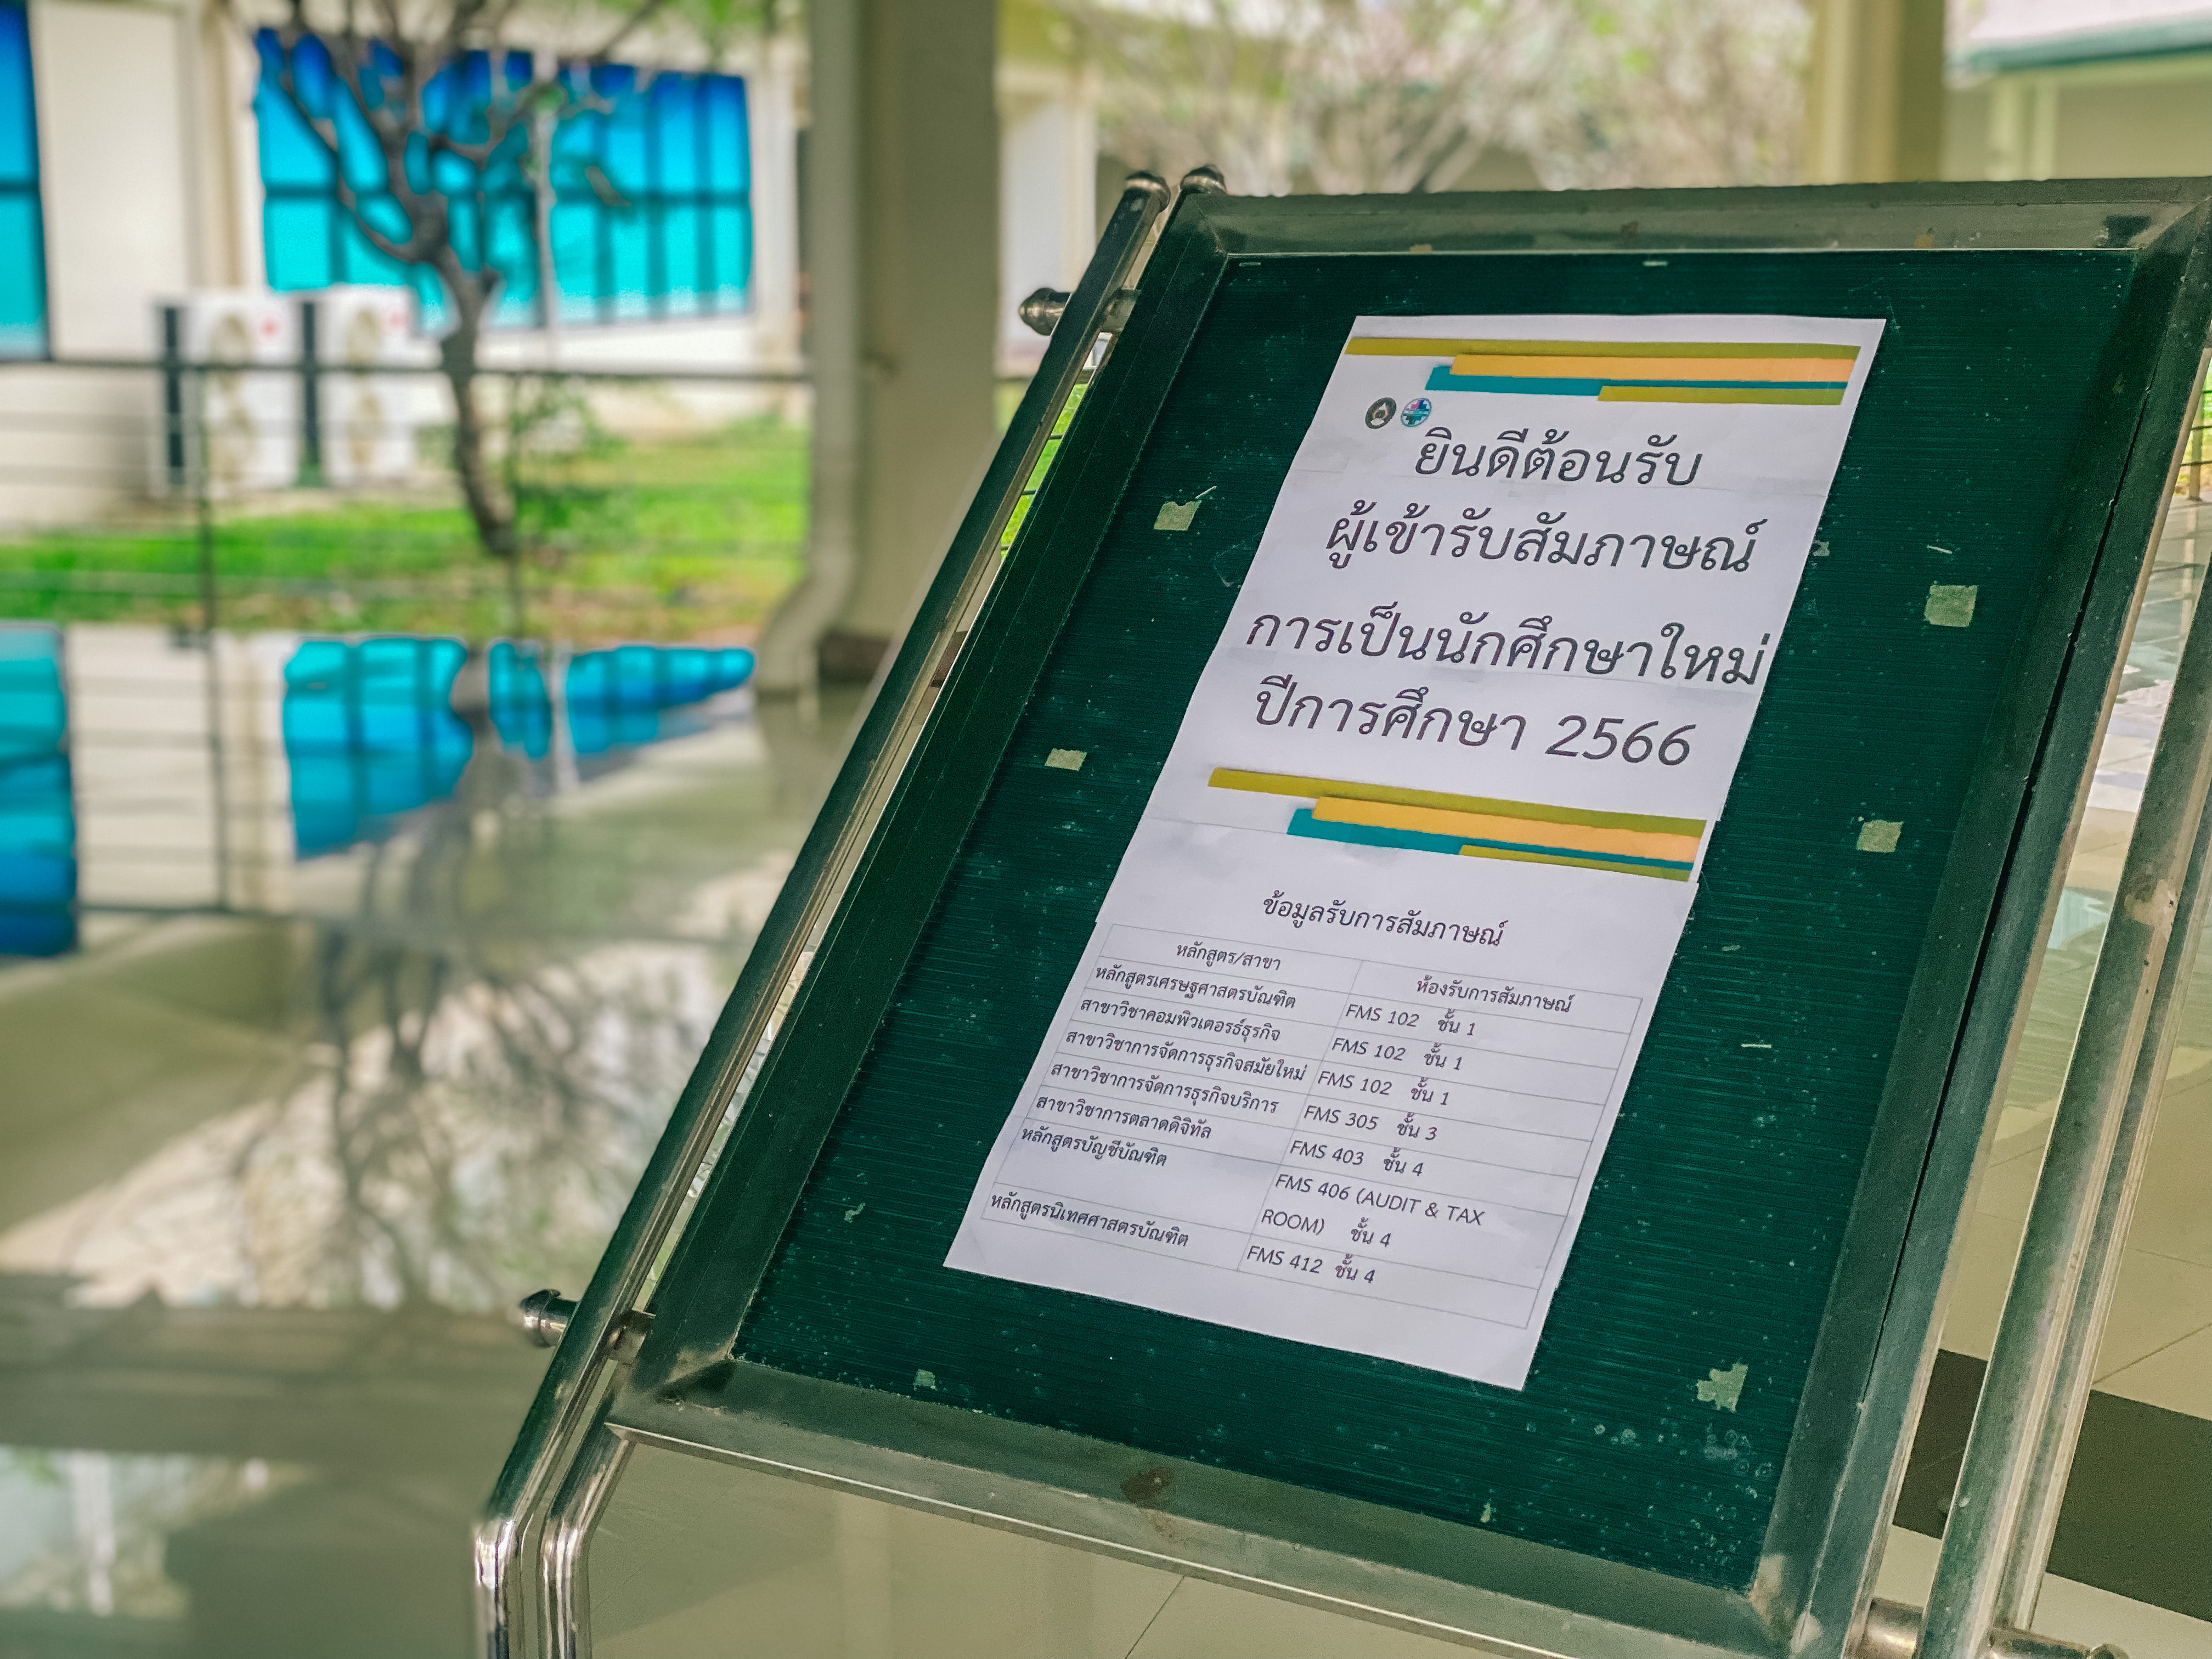 ยินดีต้อนรับ
ผู้เข้ารับสัมภาษณ์
การเป็นนักศึกษาใหม่
ปีการศึกษา 2566
ข้อมูลรับการสัมภาษณ์
หลักสูตร/สาขา ห้องรับการสัมภาษณ์
หลักสูตรเศรษฐศาสตรบัณฑิต FMS 102 ชั้น 1
สาขาวิชาคอมพิวเตอร์ธุรกิจ FMS 102 ชั้น 1
สาขาวิชาการจัดการธุรกิจสมัยใหม่ FMS 102 ชั้น 1
สาขาวิชาการจัดการธุรกิจบริการ FMS 305 ชั้น 3
สาขาวิชาการตลาดดิจิทัล FMS 403 ชั้น 4
หลักสูตรบัญชีบัณฑิต FMS 406 (AUDIT & TAX
ROOM) ชั้น 4
หลักสูตรนิเทศศาสตรบัณฑิต FMS 412 ชั้น 4